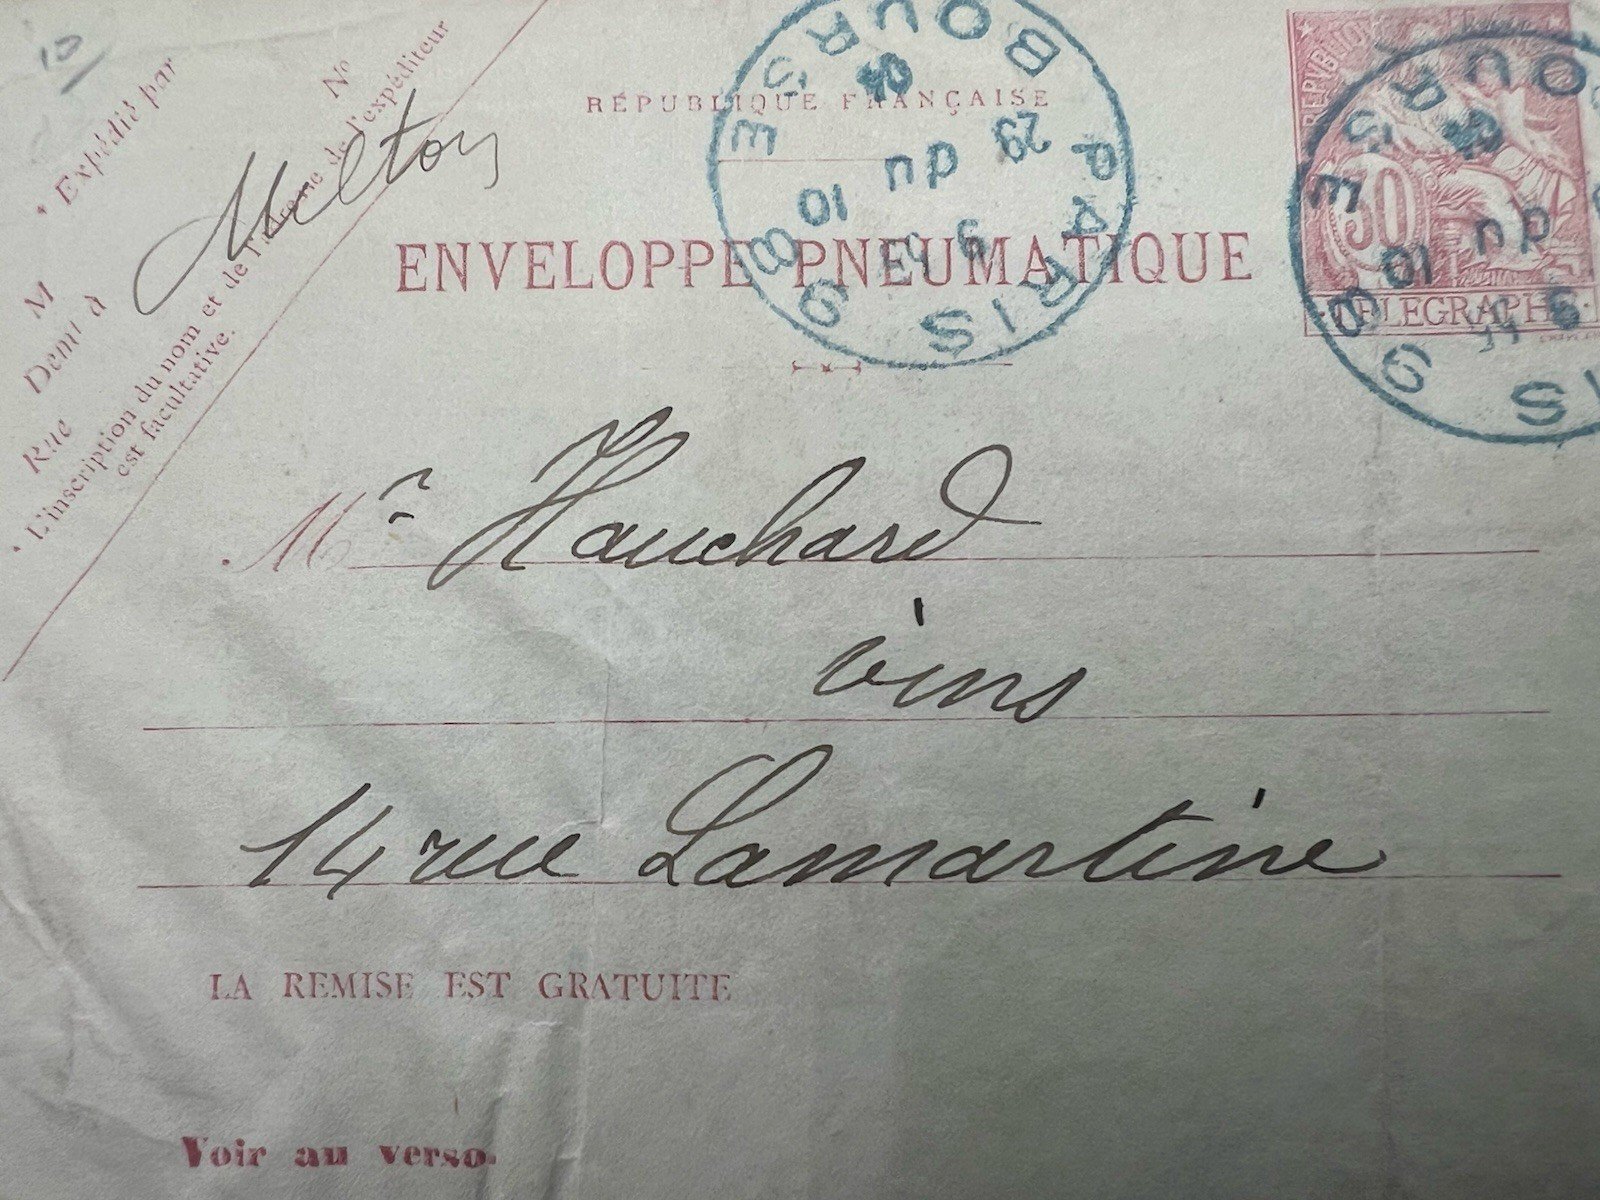 10
* Expédié par
M
Demt à
Rue
N°
* L'inscription du nom et de l'adresse de l'expéditeur
est facultative.
Melton
RÉPUBLIQUE FRANÇAISE
ENVELOPPE PNEUMATIQUE
PARIS 89
BOURSE
29
du
10
TELEGRAPHE
30
Mr Hauchard
vins
14 rue Lamartine
LA REMISE EST GRATUITE
Voir au verso.